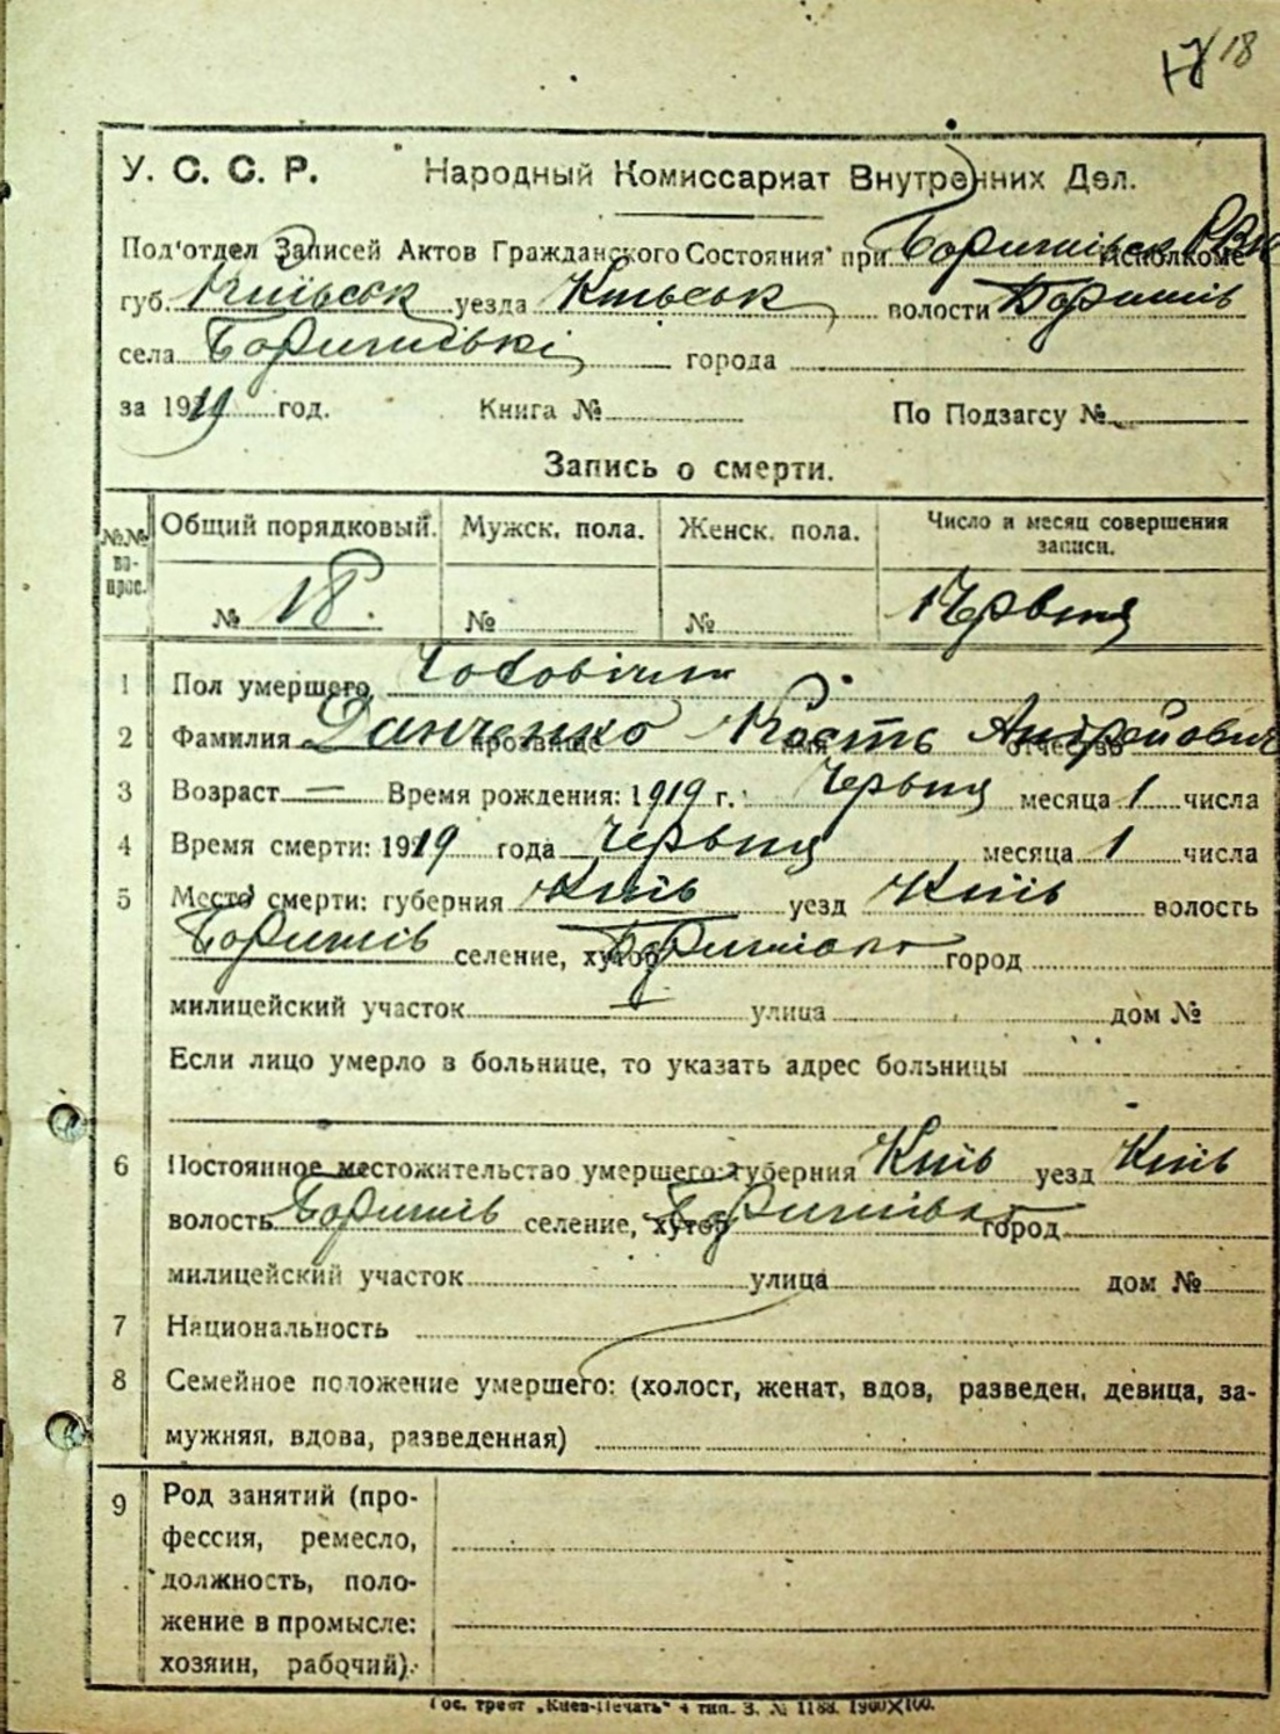 18
У. С. С. Р. Народный Комиссариат Внутренних Дел.
Под'отдел Записей Актов Гражданского Состояния при Исполкоме
губ. Київськ уезда Київськ волости Боришів
села города
за 1919 год. Книга № По Подзагсу №
Запись о смерти.
№№ во-прос. Общий порядковый. Мужск. пола. Женск. пола. Число и месяц совершения записи.
№ 18. № № 1 Червня
1 Пол умершего Чоловічи
2 Фамилия Данченко Кость Андрійович
прозвище имя отчество
3 Возраст — Время рождения: 1919 г. Червня месяца 1 числа
4 Время смерти: 1919 года Червня месяца 1 числа
5 Место смерти: губерния Київ уезд Київ волость
Боришів селение, хутор город
милицейский участок улица дом №
Если лицо умерло в больнице, то указать адрес больницы
6 Постоянное местожительство умершего: губерния Київ уезд Київ
волость Боришів селение, хутор город
милицейский участок улица дом №
7 Национальность
8 Семейное положение умершего: (холост, женат, вдов, разведен, девица, за-
мужняя, вдова, разведенная)
9 Род занятий (про-
фессия, ремесло,
должность, поло-
жение в промысле:
хозяин, рабочий).
Гос. трест „Киев-Печать" 4 тип. З. № 1188. 1900×100.